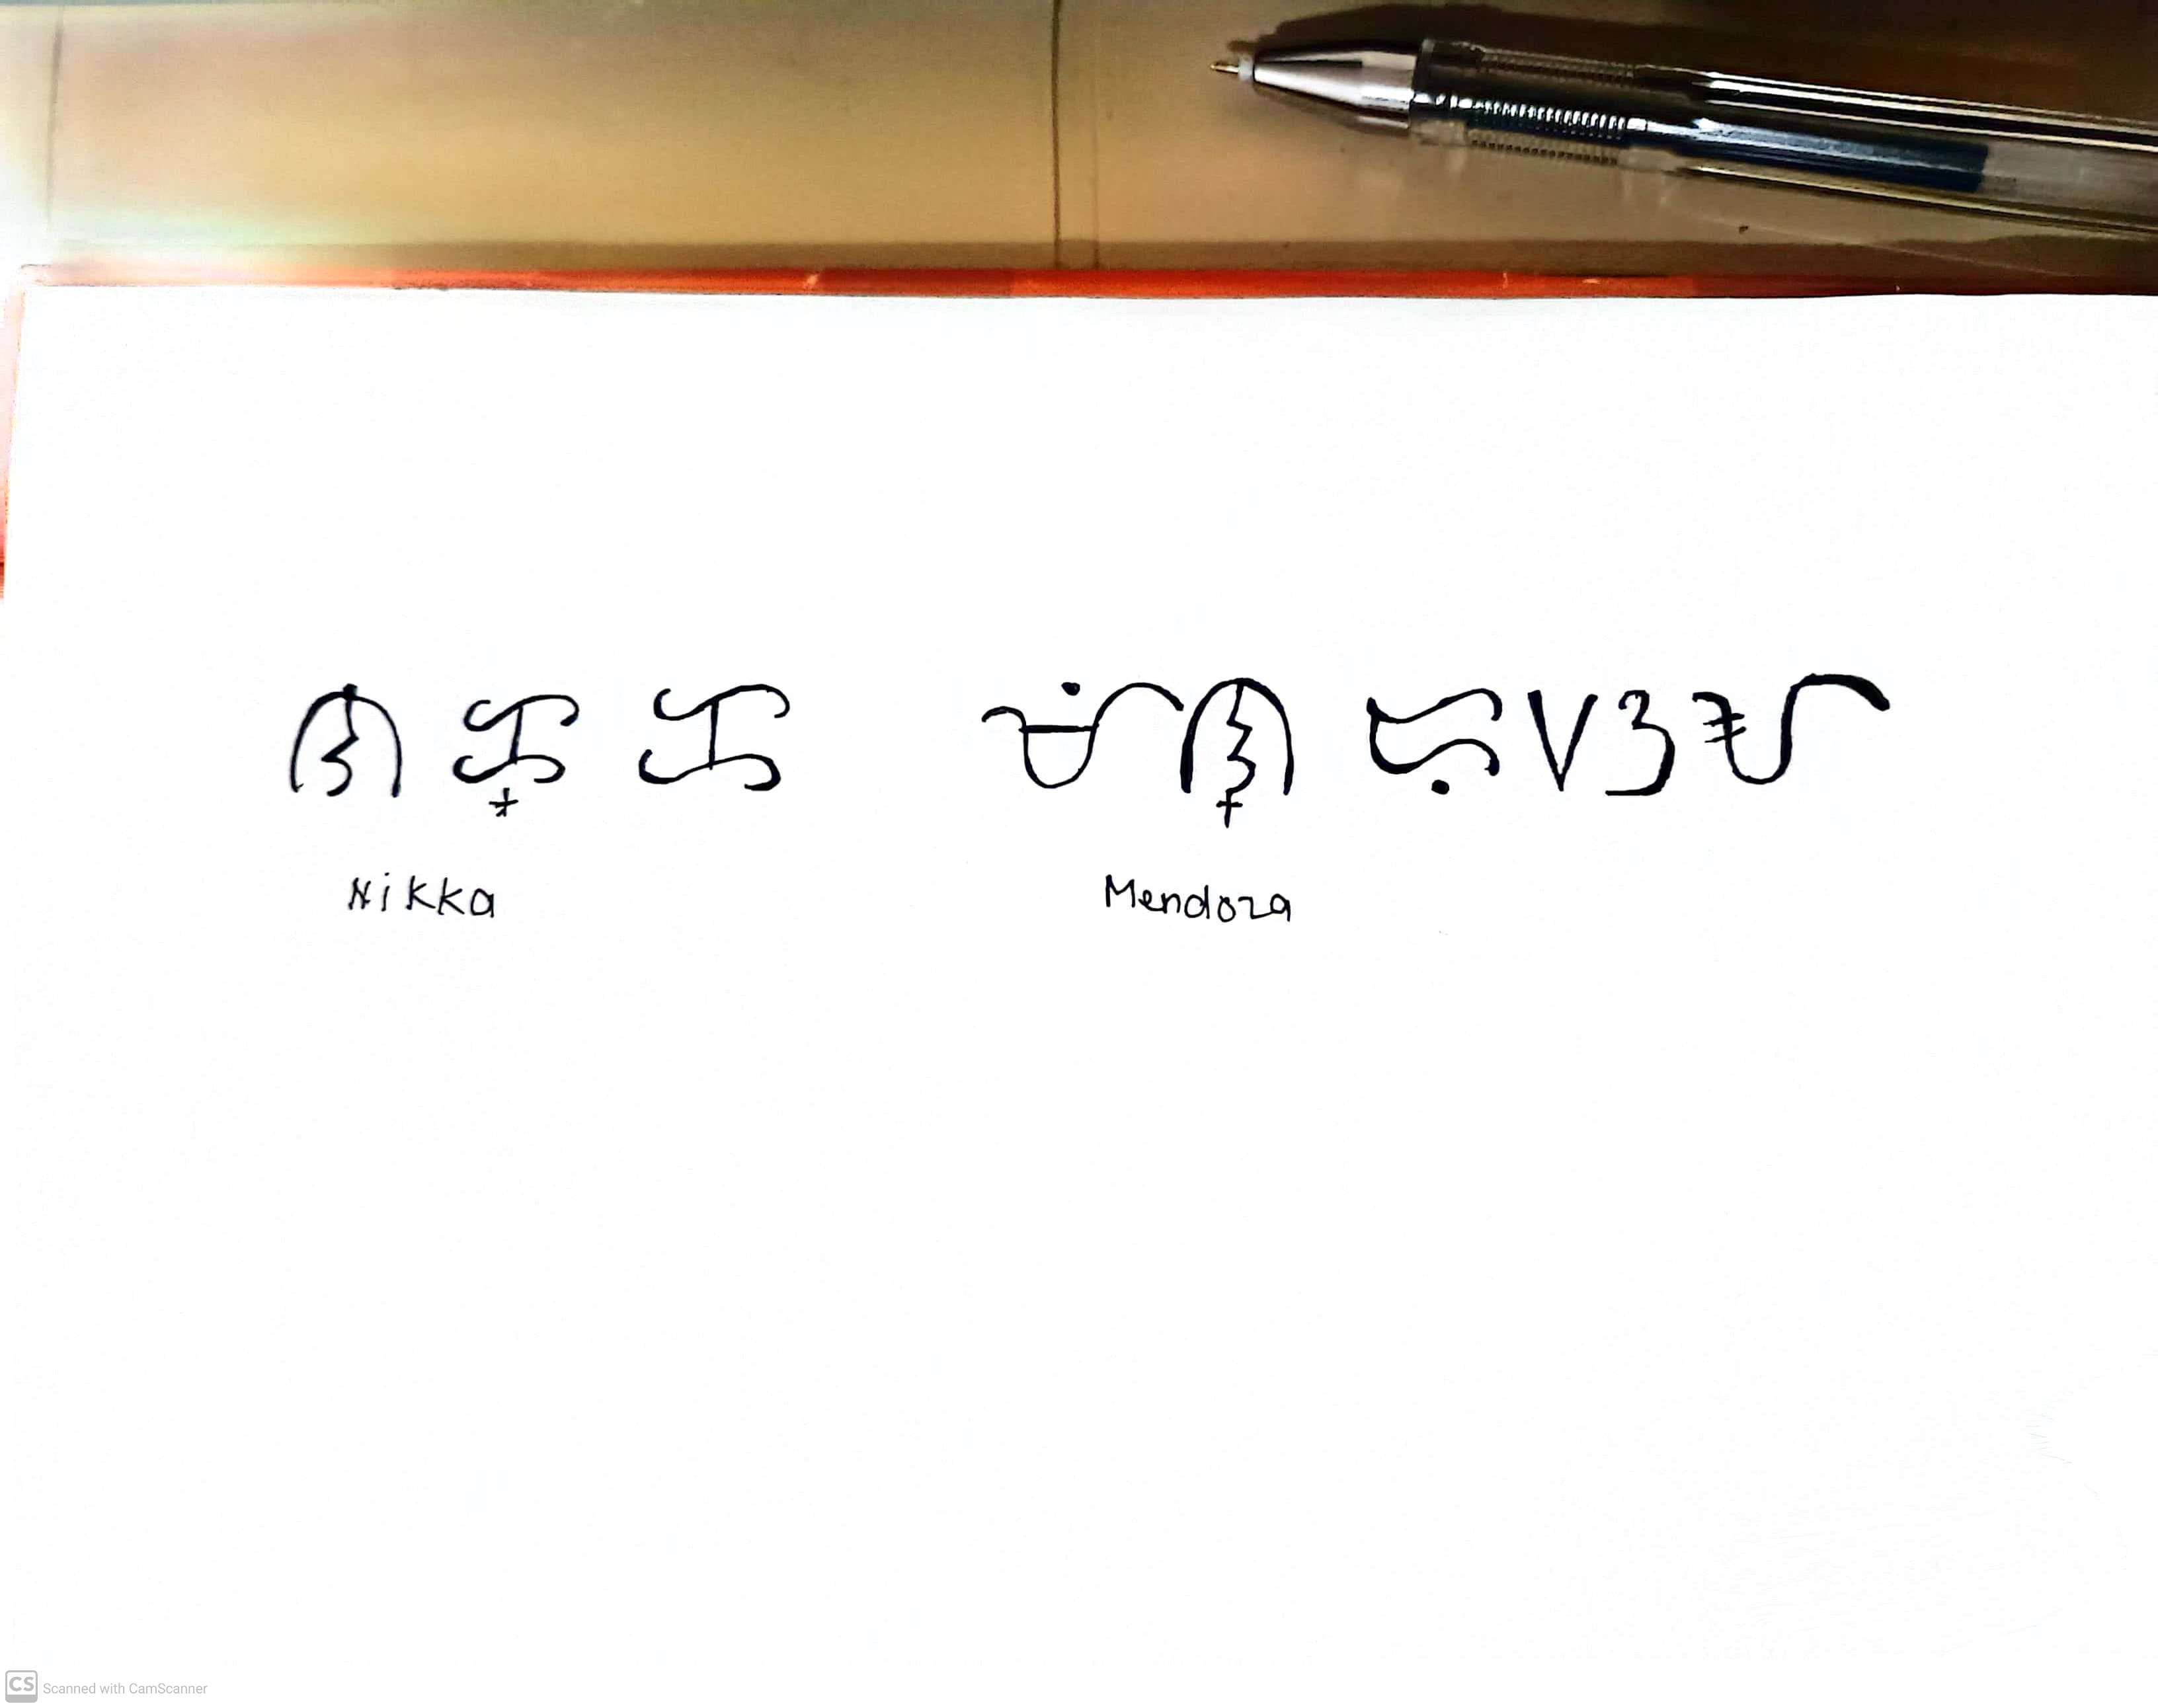 ᜈᜒᜃ᜔ᜃ ᜋᜒᜈ᜔ᜇᜓᜐᜌ
Nikka Mendoza
CS Scanned with CamScanner